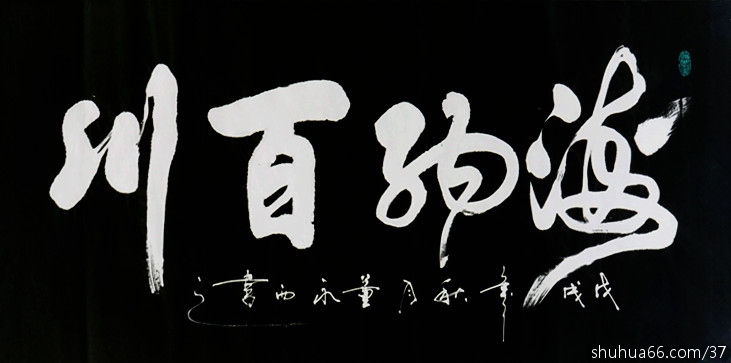 海纳百川
戊戌年秋月董永西书之
shuhua66.com/37